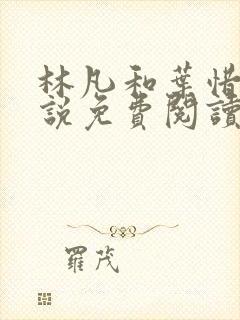 林凡和葉惜
說免費閱讀
羅茂